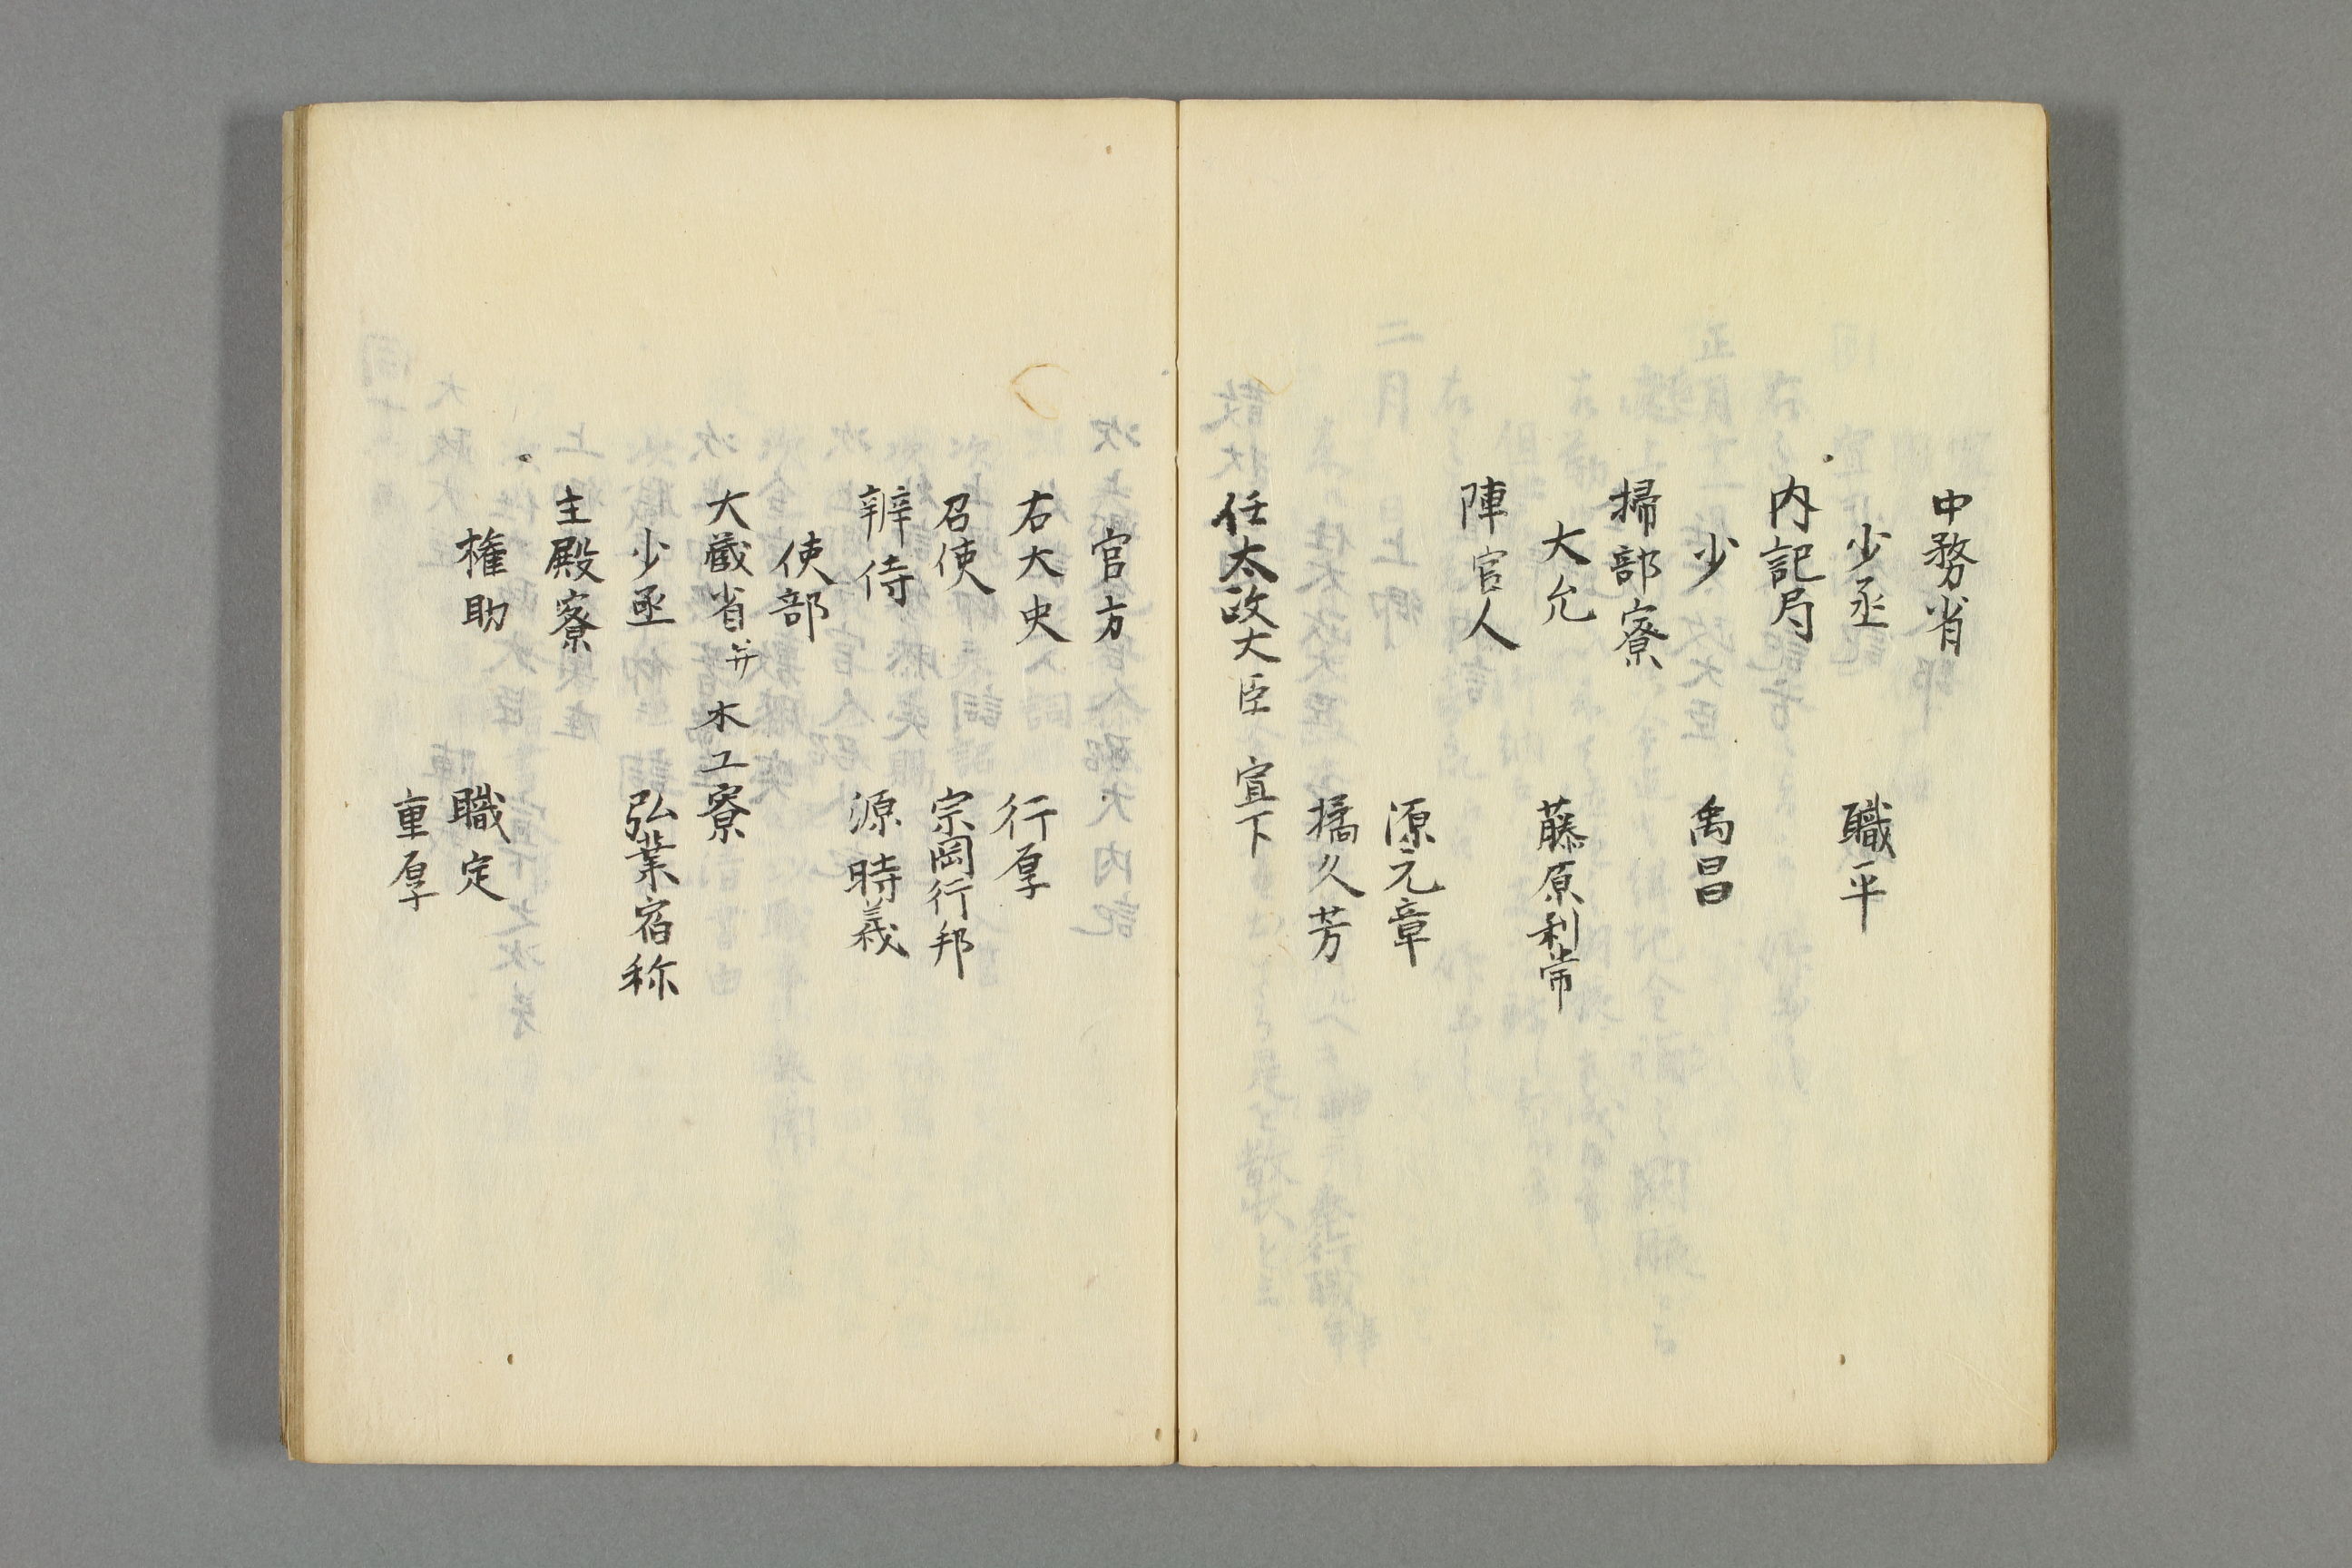 中務省
少丞　職平
内記局
少　禹昌
掃部寮
大允　藤原利常
陣官人
源元章
橘久芳
任太政大臣　宣下
官方
右大史　行厚
召使　宗岡行邦
辨侍　源時義
使部
大蔵省并　木工寮
少丞　弘業宿称
主殿寮
権助　職定
重厚